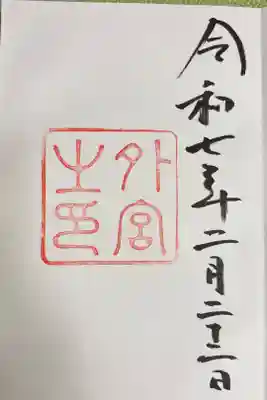 令和七年二月二十二日
外宮
之印